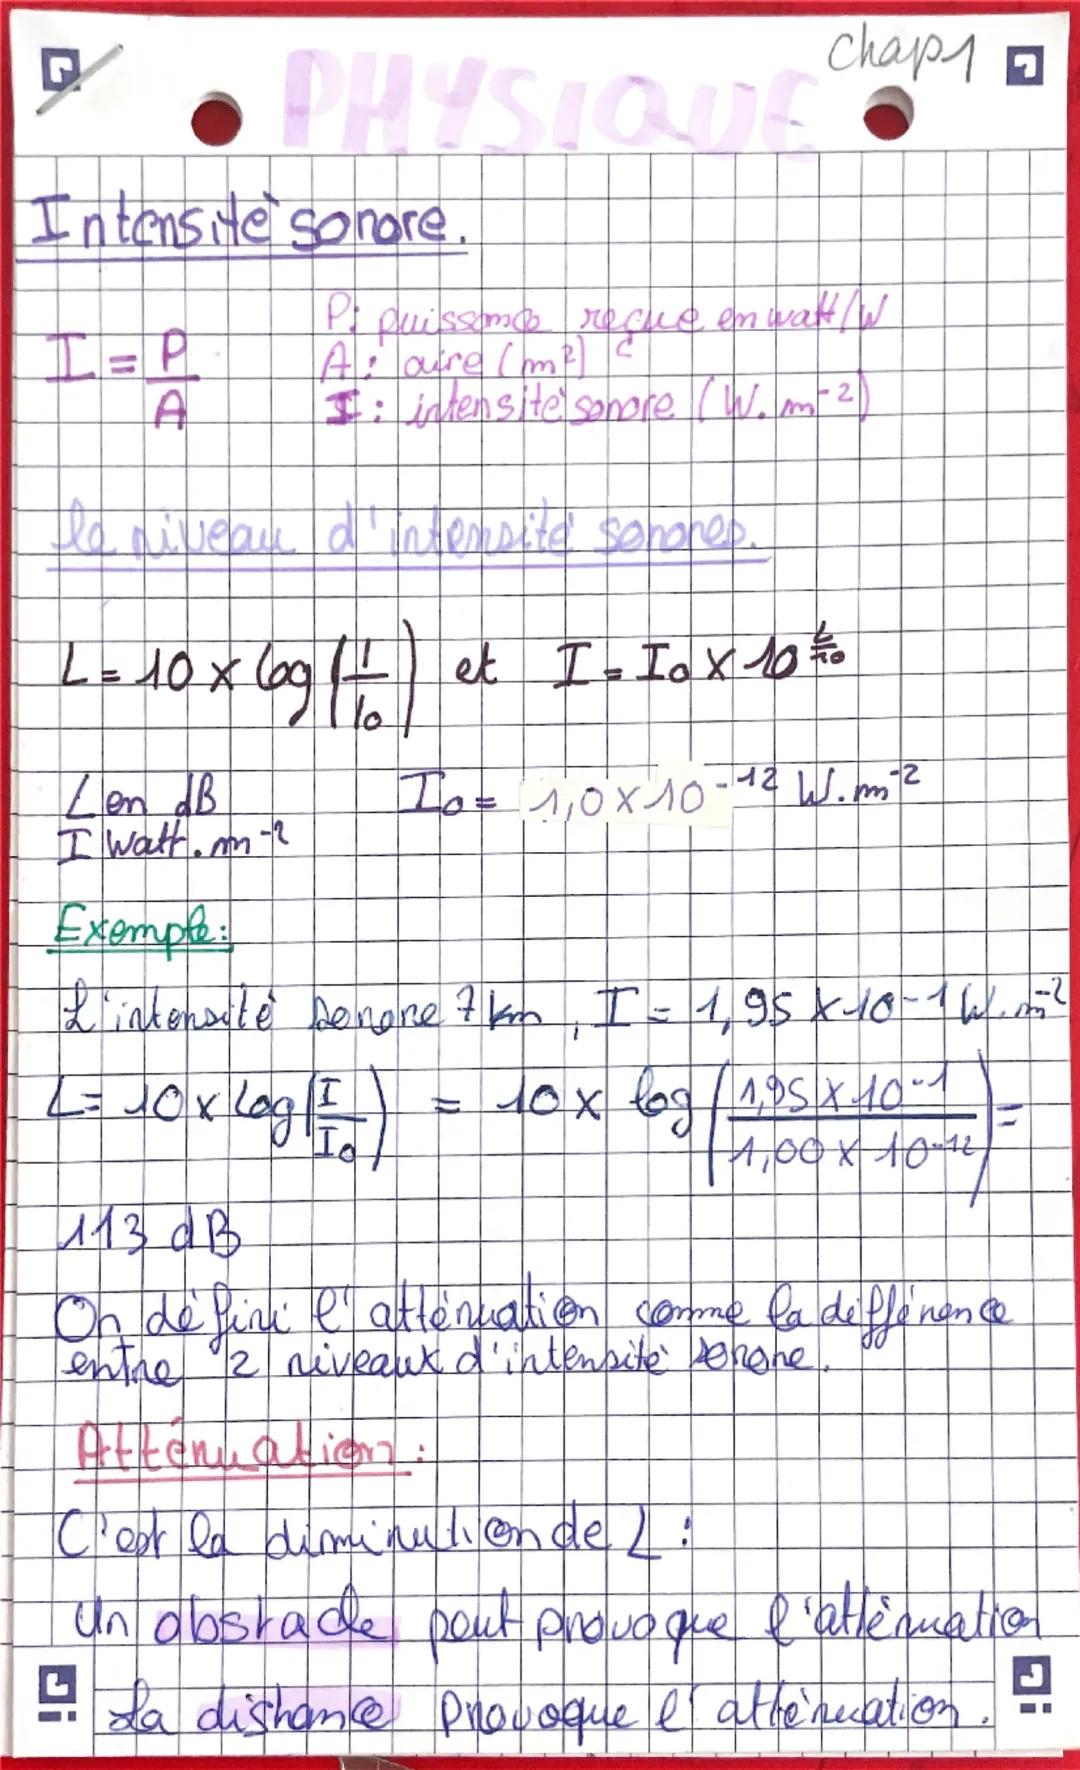 Chap 1
PHYSIQUE
Intensité sonore.
I = P/A
P: puissance reçue en watt/W
A: aire (m²)
I: intensité sonore (W.m⁻²)
le niveau d'intensité sonores.
L = 10 x log (I/I0) et I = I0 x 10^(L/10)
L en dB
I Watt.m⁻²
I0 = 1,0 x 10⁻¹² W.m⁻²
Exemple:
L'intensité sonore 7km, I = 1,95 x 10-1 W.m⁻²
L = 10 x log (I/I0) = 10 x log (1,95 x 10-1/1,00 x 10-12) =
113 dB
On défini l'atténuation comme la différence
entre 2 niveaux d'intensité sonore.
Atténuation:
C'est la diminution de L:
Un obstacle peut provoque l'atténuation
La distance provoque l'atténuation.